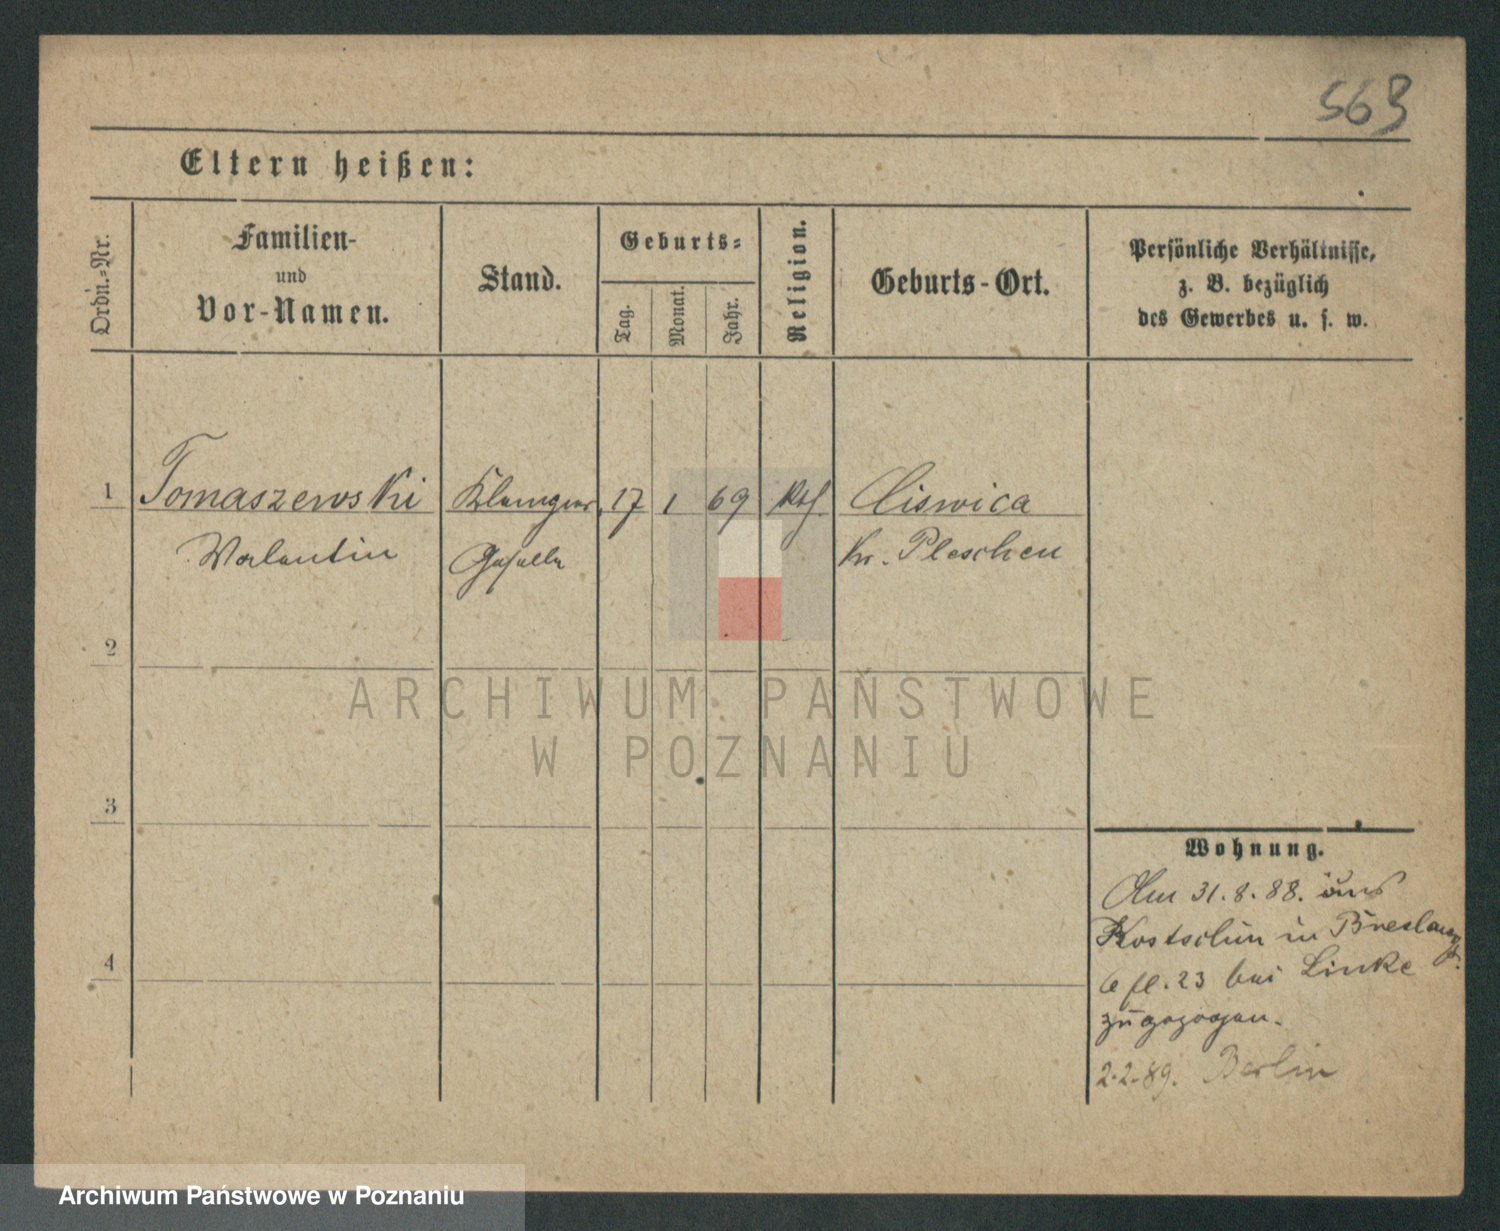 563
Eltern heißen:
Ordn.-Nr.
Familien-
und
Vor-Namen.
Stand.
Geburts-
Tag.
Monat.
Jahr.
Religion.
Geburts-Ort.
Persönliche Verhältnisse,
z. B. bezüglich
des Gewerbes u. s. w.
1 Tomaszewski Klempner 17 1 69 Kth. Ciswica
Valentin Geselle Kr. Pleschen
2
3
4
Wohnung.
Am 31.8.88. aus
Kostschin in Breslauer
23 bei Linke
zugezogen.
2.2.89. Berlin
ARCHIWUM PAŃSTWOWE
W POZNANIU
Archiwum Państwowe w Poznaniu